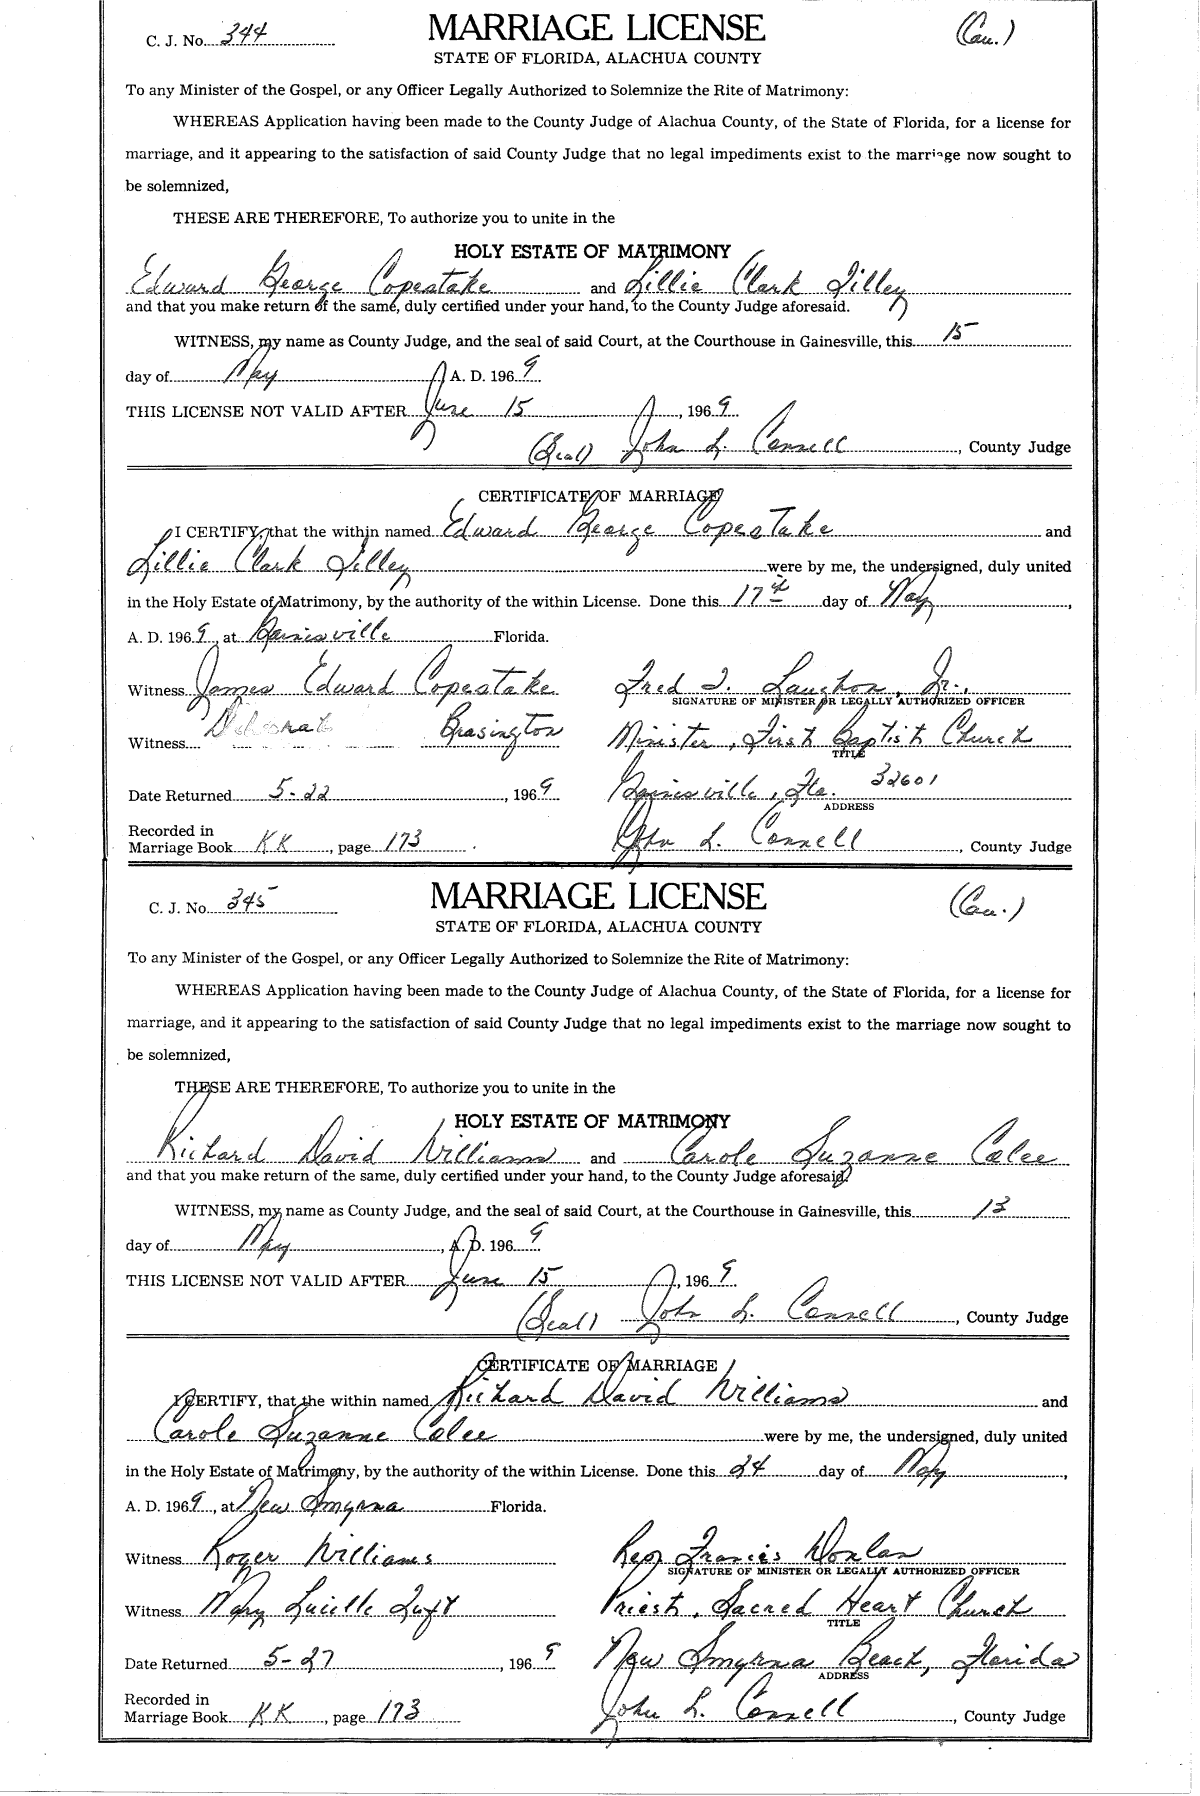 C. J. No. 344
MARRIAGE LICENSE
(Cau.)
STATE OF FLORIDA, ALACHUA COUNTY
To any Minister of the Gospel, or any Officer Legally Authorized to Solemnize the Rite of Matrimony:
WHEREAS Application having been made to the County Judge of Alachua County, of the State of Florida, for a license for
marriage, and it appearing to the satisfaction of said County Judge that no legal impediments exist to the marriage now sought to
be solemnized,
THESE ARE THEREFORE, To authorize you to unite in the
HOLY ESTATE OF MATRIMONY
Edward George Copestake and Lillie Clark Tilley
and that you make return of the same, duly certified under your hand, to the County Judge aforesaid.
WITNESS, my name as County Judge, and the seal of said Court, at the Courthouse in Gainesville, this 15
day of May A. D. 1969
THIS LICENSE NOT VALID AFTER June 15, 1969
(Seal) John L. Connell, County Judge
CERTIFICATE OF MARRIAGE
I CERTIFY, that the within named Edward George Copestake and
Lillie Clark Tilley were by me, the undersigned, duly united
in the Holy Estate of Matrimony, by the authority of the within License. Done this 17th day of May,
A. D. 1969, at Gainesville Florida.
Witness James Edward Copestake Fred T. Laughon, Jr.,
SIGNATURE OF MINISTER OR LEGALLY AUTHORIZED OFFICER
Witness Deborah Brasington Minister, First Baptist Church
TITLE
Date Returned 5-22, 1969 Gainesville, Fla. 32601
ADDRESS
Recorded in
Marriage Book KK, page 173. John L. Connell, County Judge
C. J. No. 345
MARRIAGE LICENSE
(Cau.)
STATE OF FLORIDA, ALACHUA COUNTY
To any Minister of the Gospel, or any Officer Legally Authorized to Solemnize the Rite of Matrimony:
WHEREAS Application having been made to the County Judge of Alachua County, of the State of Florida, for a license for
marriage, and it appearing to the satisfaction of said County Judge that no legal impediments exist to the marriage now sought to
be solemnized,
THESE ARE THEREFORE, To authorize you to unite in the
HOLY ESTATE OF MATRIMONY
Richard David Williams and Carole Suzanne Calee
and that you make return of the same, duly certified under your hand, to the County Judge aforesaid.
WITNESS, my name as County Judge, and the seal of said Court, at the Courthouse in Gainesville, this 13
day of May, A. D. 1969
THIS LICENSE NOT VALID AFTER June 15, 1969
(Seal) John L. Connell, County Judge
CERTIFICATE OF MARRIAGE
I CERTIFY, that the within named Richard David Williams and
Carole Suzanne Calee were by me, the undersigned, duly united
in the Holy Estate of Matrimony, by the authority of the within License. Done this 24 day of May,
A. D. 1969, at New Smyrna Florida.
Witness Roger Williams Rev. Francis Donlan
SIGNATURE OF MINISTER OR LEGALLY AUTHORIZED OFFICER
Witness Mary Lucille Luft Priest, Sacred Heart Church
TITLE
Date Returned 5-27, 1969 New Smyrna Beach, Florida
ADDRESS
Recorded in
Marriage Book KK, page 173 John L. Connell, County Judge